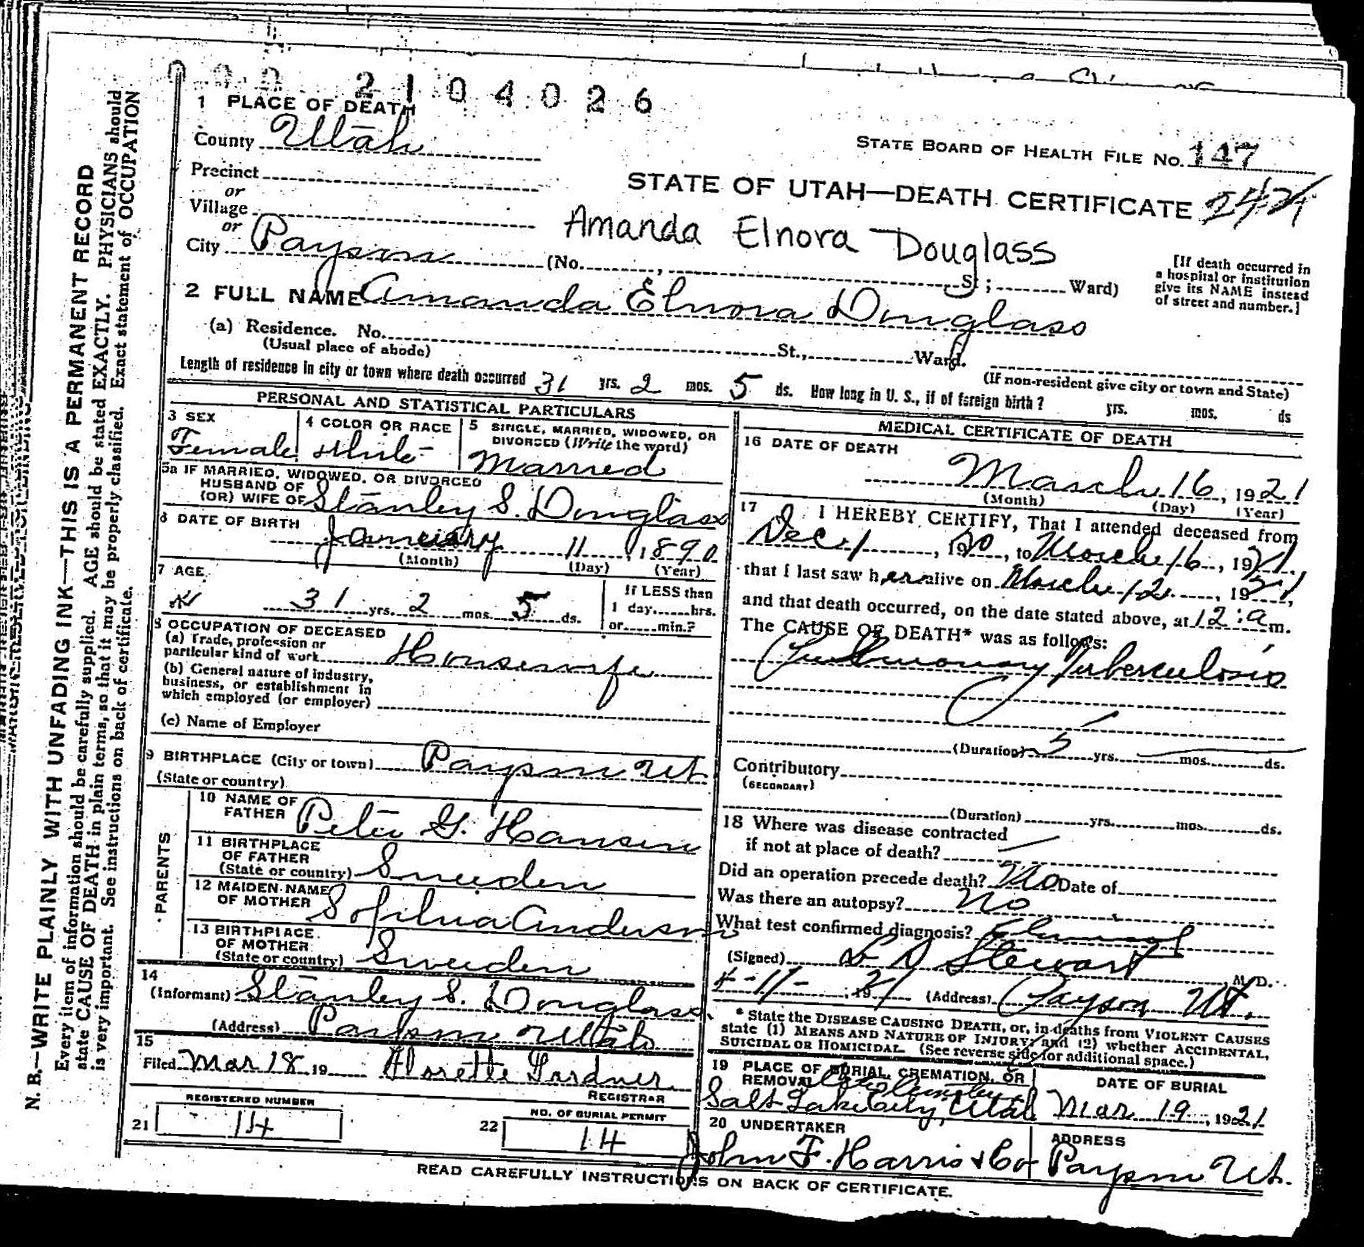 000 2104026
1 PLACE OF DEATH
County Utah
STATE BOARD OF HEALTH FILE No. 147
Precinct
or
STATE OF UTAH—DEATH CERTIFICATE 242
Village
or
Amanda Elnora Douglass
City Payson (No. , St; Ward)
[If death occurred in
a hospital or institution
give its NAME instead
of street and number.]
2 FULL NAME Amanda Elnora Douglass
(a) Residence. No. St., Ward.
(Usual place of abode)
(If non-resident give city or town and State)
Length of residence in city or town where death occurred 31 yrs. 2 mos. 5 ds. How long in U. S., if of foreign birth? yrs. mos. ds
PERSONAL AND STATISTICAL PARTICULARS
3 SEX
Female
4 COLOR OR RACE
White
5 SINGLE, MARRIED, WIDOWED, OR
DIVORCED (Write the word)
Married
5a IF MARRIED, WIDOWED, OR DIVORCED
HUSBAND OF
(OR) WIFE OF Stanley S. Douglass
6 DATE OF BIRTH
January 11 1890
(Month) (Day) (Year)
7 AGE
31 yrs. 2 mos. 5 ds.
If LESS than
1 day hrs.
or min.?
8 OCCUPATION OF DECEASED
(a) Trade, profession or
particular kind of work Housewife
(b) General nature of industry,
business, or establishment in
which employed (or employer)
(c) Name of Employer
9 BIRTHPLACE (City or town) Payson Ut
(State or country)
PARENTS
10 NAME OF
FATHER Peter G. Hansen
11 BIRTHPLACE
OF FATHER
(State or country) Sweden
12 MAIDEN NAME
OF MOTHER Anderson
13 BIRTHPLACE
OF MOTHER
(State or country) Sweden
14
(Informant) Stanley S. Douglass
(Address) Payson Utah
15
Filed Mar 18 19 Florette Gardner
REGISTRAR
REGISTERED NUMBER
21 14
NO. OF BURIAL PERMIT
22 14
MEDICAL CERTIFICATE OF DEATH
16 DATE OF DEATH
March 16, 1921
(Month) (Day) (Year)
17 I HEREBY CERTIFY, That I attended deceased from
Dec 1, 1920, to March 16, 1921,
that I last saw her alive on March 12, 1921,
and that death occurred, on the date stated above, at 12:a m.
The CAUSE OF DEATH* was as follows:
Pulmonary Tuberculosis
(Duration) 5 yrs. mos. ds.
Contributory
(SECONDARY)
(Duration) yrs. mos. ds.
18 Where was disease contracted
if not at place of death?
Did an operation precede death? No Date of
Was there an autopsy? No
What test confirmed diagnosis? Clinical
(Signed) L D Stewart M. D.
4-11- 1921 (Address) Payson Ut.
* State the DISEASE CAUSING DEATH, or, in deaths from VIOLENT CAUSES
state (1) MEANS AND NATURE OF INJURY; and (2) whether ACCIDENTAL,
SUICIDAL OR HOMICIDAL. (See reverse side for additional space.)
19 PLACE OF BURIAL, CREMATION, OR
REMOVAL
Salt Lake City, Utah
DATE OF BURIAL
Mar 19, 1921
20 UNDERTAKER
John F. Harris & Co
ADDRESS
Payson Ut.
READ CAREFULLY INSTRUCTIONS ON BACK OF CERTIFICATE.
N. B.—WRITE PLAINLY WITH UNFADING INK—THIS IS A PERMANENT RECORD
Every item of information should be carefully supplied. AGE should be stated EXACTLY. PHYSICIANS should
state CAUSE OF DEATH in plain terms, so that it may be properly classified. Exact statement of OCCUPATION
is very important. See instructions on back of certificate.